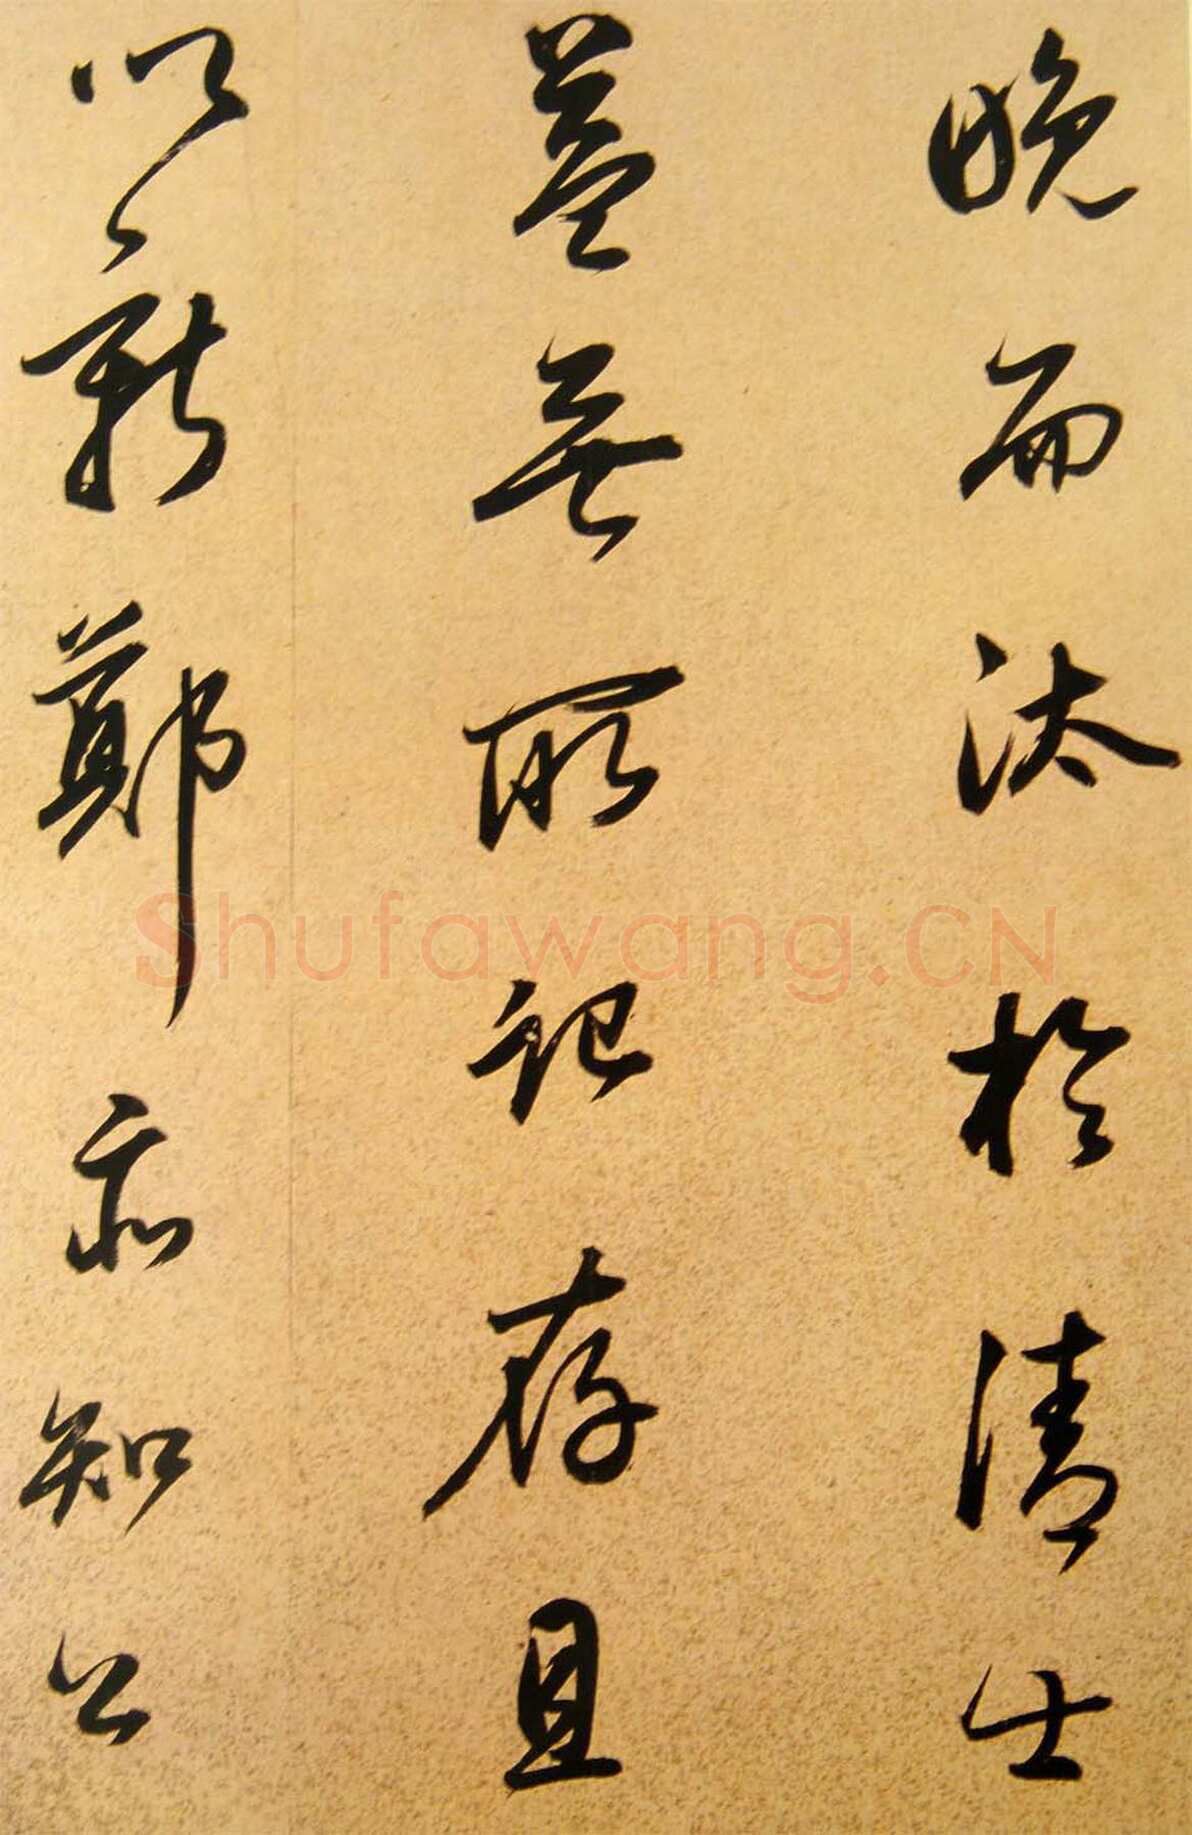 晚而汰於清士
蓋無所記存且
以新鄭亦知公
Shufawang.CN